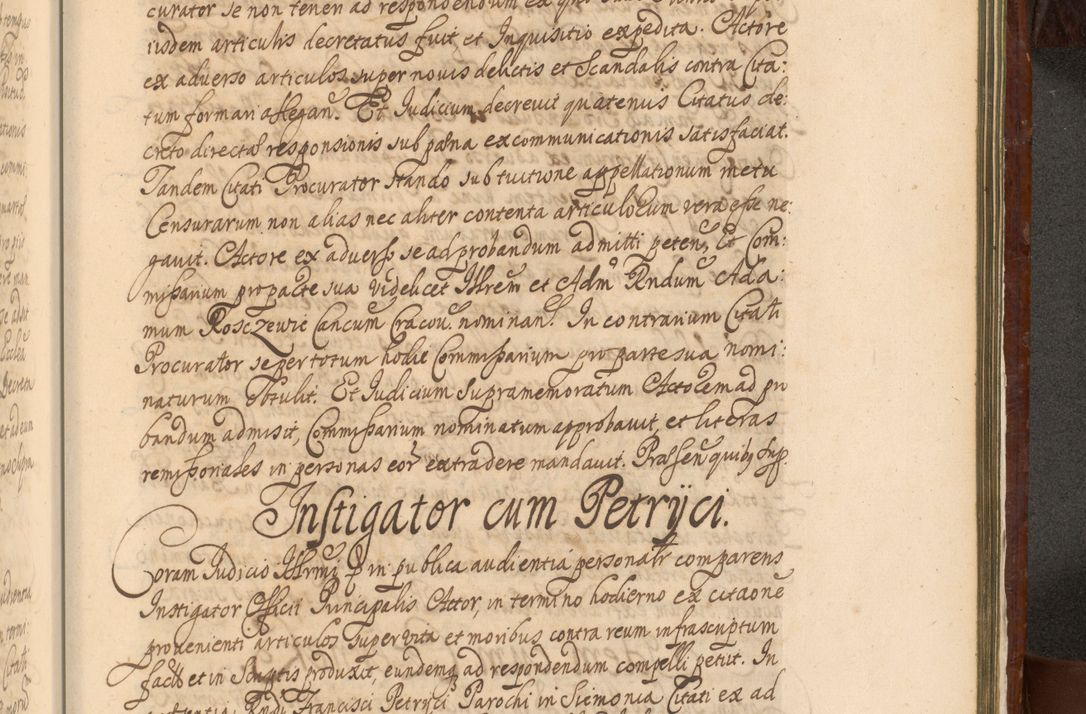 curator se non tenen ad respondendum ex quo
iisdem articulis decretatus fuit et Inquisitio expedita. Actore
ex adverso articulos super novis delictis et Scandalis contra Cita:
tum formari allegan. Et Judicium decrevit quatenus Citatus de:
creto directal responsionis sub pæna excommunicationis satisfaciat.
Tandem Citati Procurator stando sub tuitione appellationum metu
Censurarum non alias nec aliter contenta articulorum vera esse ne:
gavit. Actore ex adverso se ad probandum admitti peten, Et Com:
missarium pro parte sua videlicet Illrem et Adm Rndum Ada:
mum Rosczewic Cancum Cracou. nominan. In contrarium Citati
Procurator se pertotum hodie Commissarium pro parte sua nomi:
naturum obtulit. Et Judicium supramemoratum Actorem ad pro
bandum admisit, Commissarium nominatum approbavit, et literas
remissoriales in personas eor extradere mandavit. Præsen quibus sup.
Instigator cum Petrÿci.
Coram Judicio Illrmi P in publica audientia personalr comparens
Instigator Officii Principalis Actor, in termino hodierno ex citaone
provenienti articulos super vita et moribus contra reum infrascriptum
facit et in Scriptis produxit, eundemq ad respondendum compelli petit. In
Rndi Francisci Petrÿci Parochi in Siemonia Citati ex ad